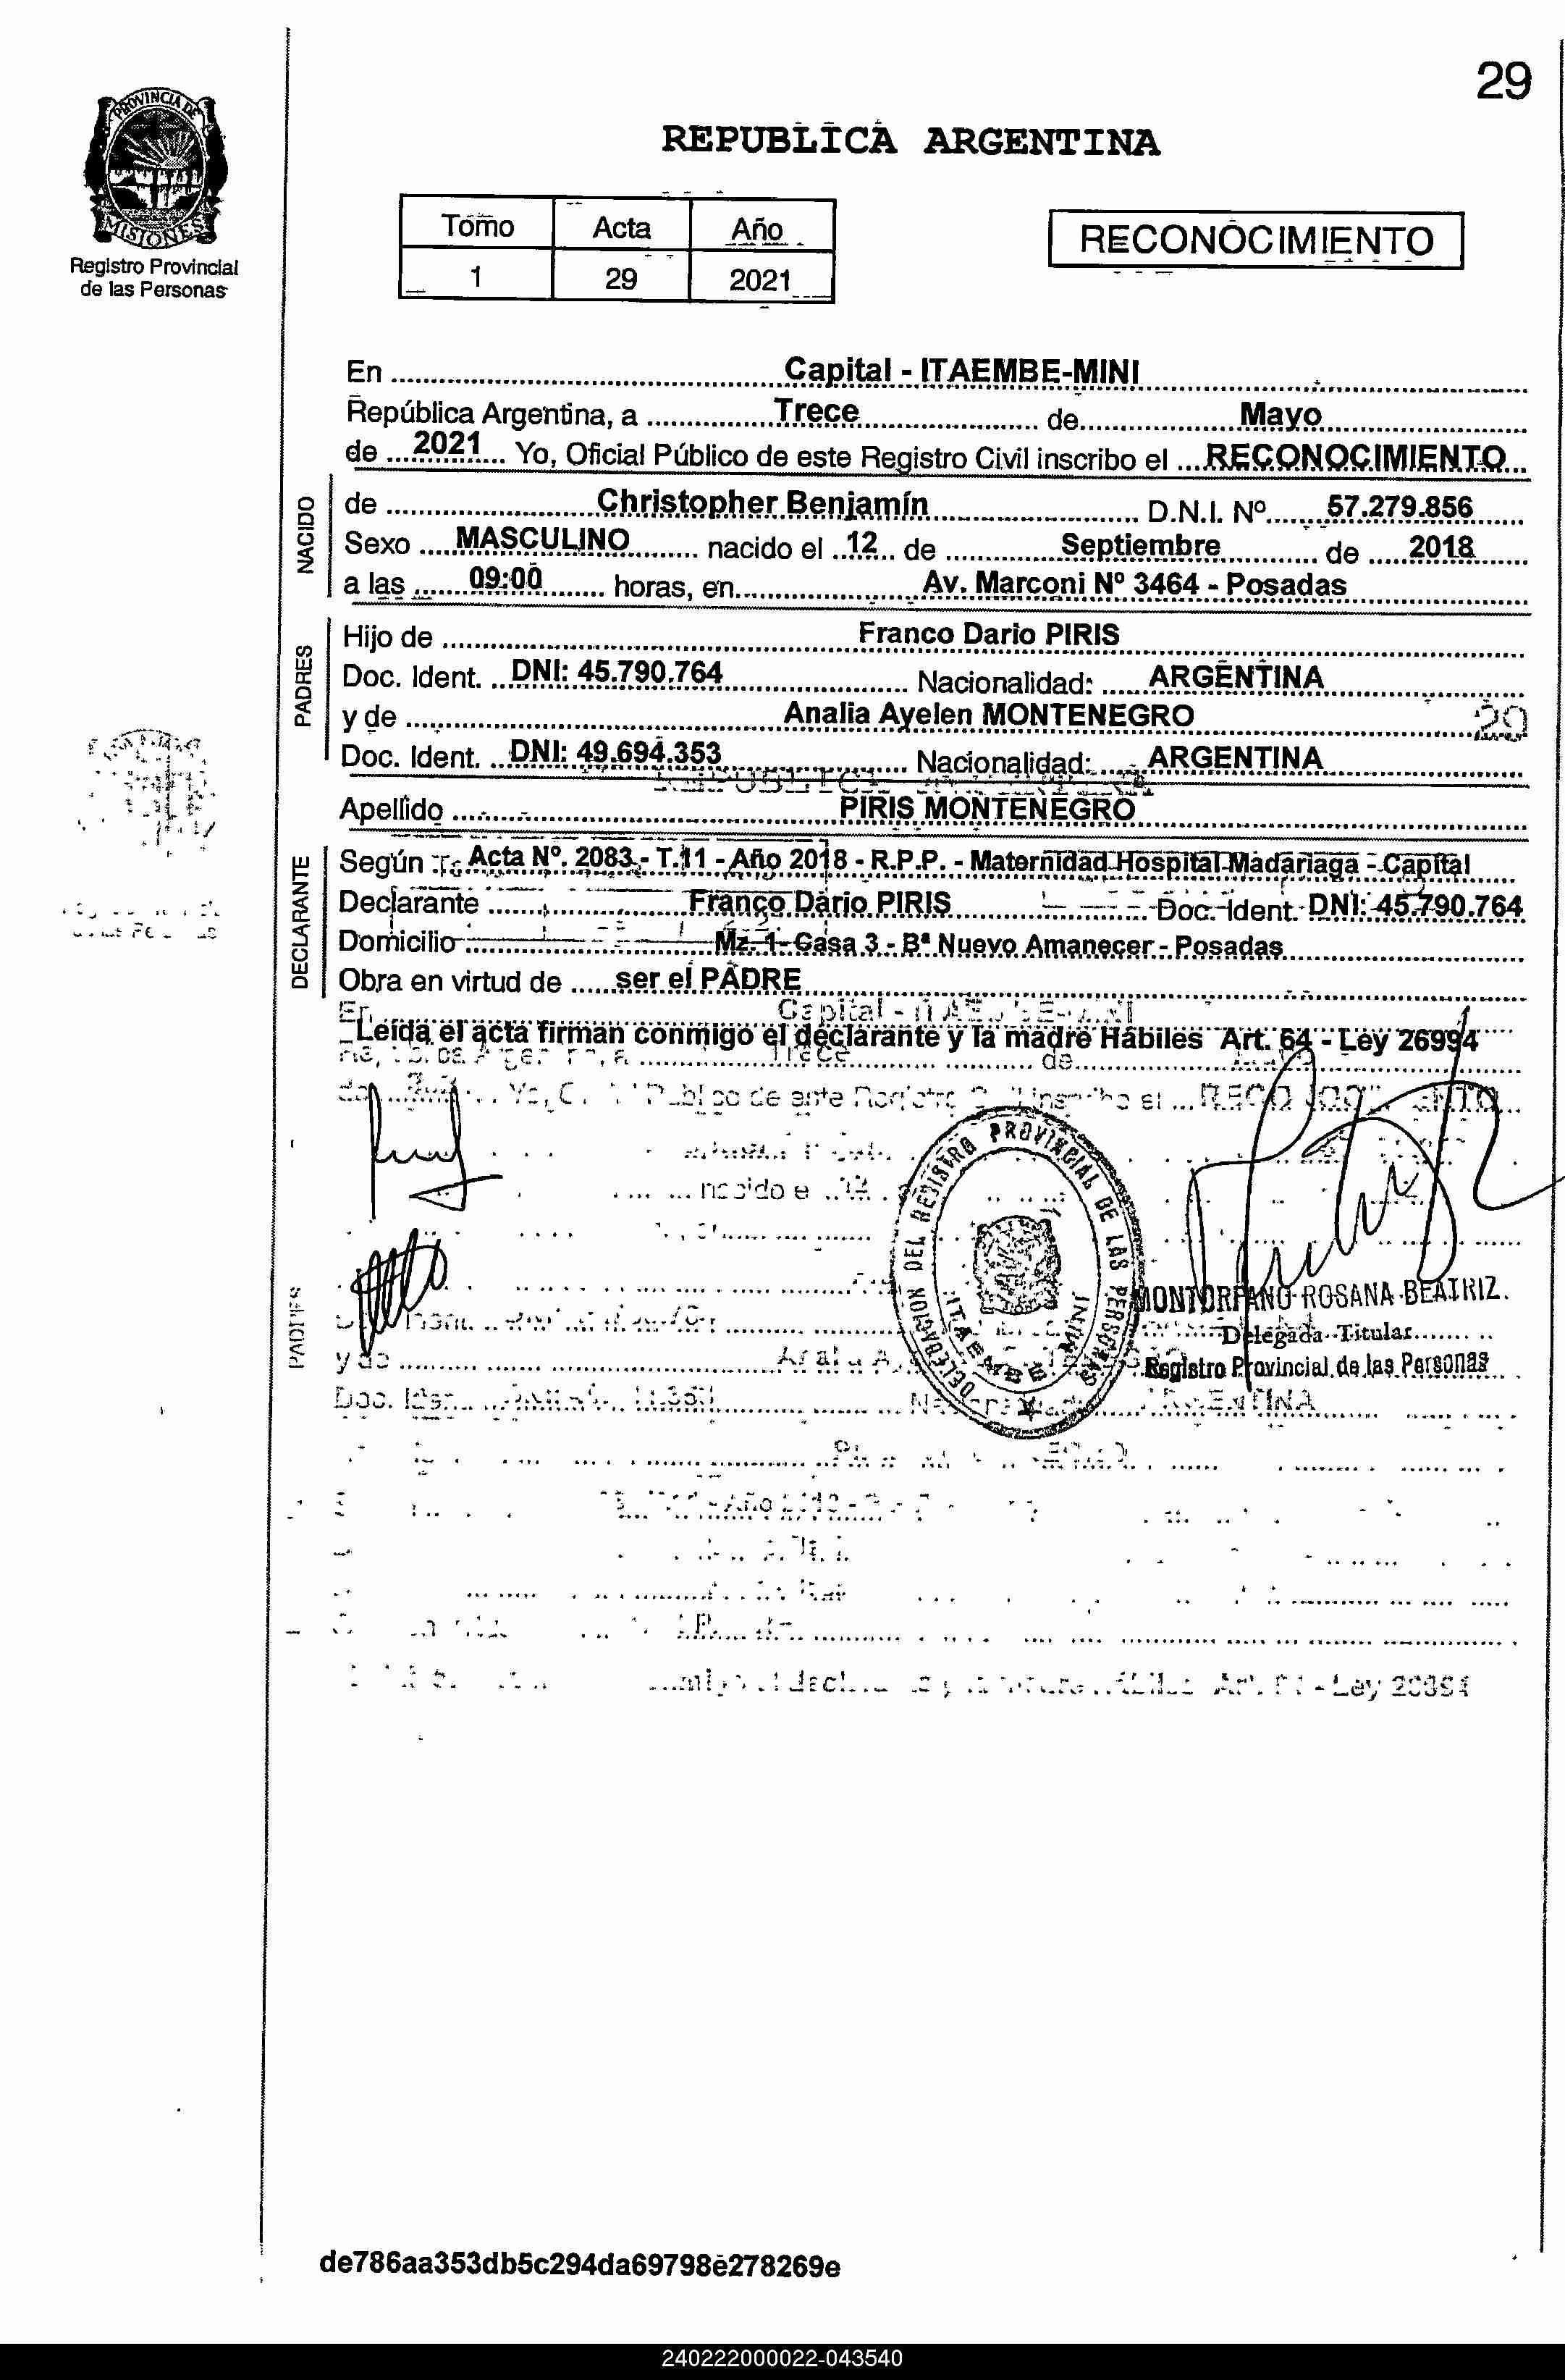 29
PROVINCIA DE MISIONES
Registro Provincial
de las Personas
REPUBLICA ARGENTINA
Tomo Acta Año
1 29 2021
RECONOCIMIENTO
En Capital - ITAEMBE-MINI
República Argentina, a Trece de Mayo
de 2021 Yo, Oficial Público de este Registro Civil inscribo el RECONOCIMIENTO
NACIDO
de Christopher Benjamín D.N.I. Nº 57.279.856
Sexo MASCULINO nacido el 12 de Septiembre de 2018
a las 09:00 horas, en Av. Marconi Nº 3464 - Posadas
PADRES
Hijo de Franco Dario PIRIS
Doc. Ident. DNI: 45.790.764 Nacionalidad: ARGENTINA
y de Analia Ayelen MONTENEGRO
Doc. Ident. DNI: 49.694.353 Nacionalidad: ARGENTINA
Apellido PIRIS MONTENEGRO
DECLARANTE
Según Acta Nº. 2083 - T.11 - Año 2018 - R.P.P. - Maternidad Hospital Madariaga - Capital
Declarante Franco Dario PIRIS Doc. Ident. DNI: 45.790.764
Domicilio Mz. 1- Casa 3 - Bª Nuevo Amanecer - Posadas
Obra en virtud de ser el PADRE
Leída el acta firman conmigo el declarante y la madre Hábiles Art. 64 - Ley 26994
DELEGACION DEL REGISTRO PROVINCIAL DE LAS PERSONAS
ITAEMBE MINI
MONTORFANO ROSANA BEATRIZ
Delegada Titular
Registro Provincial de las Personas
de786aa353db5c294da69798e278269e
240222000022-043540